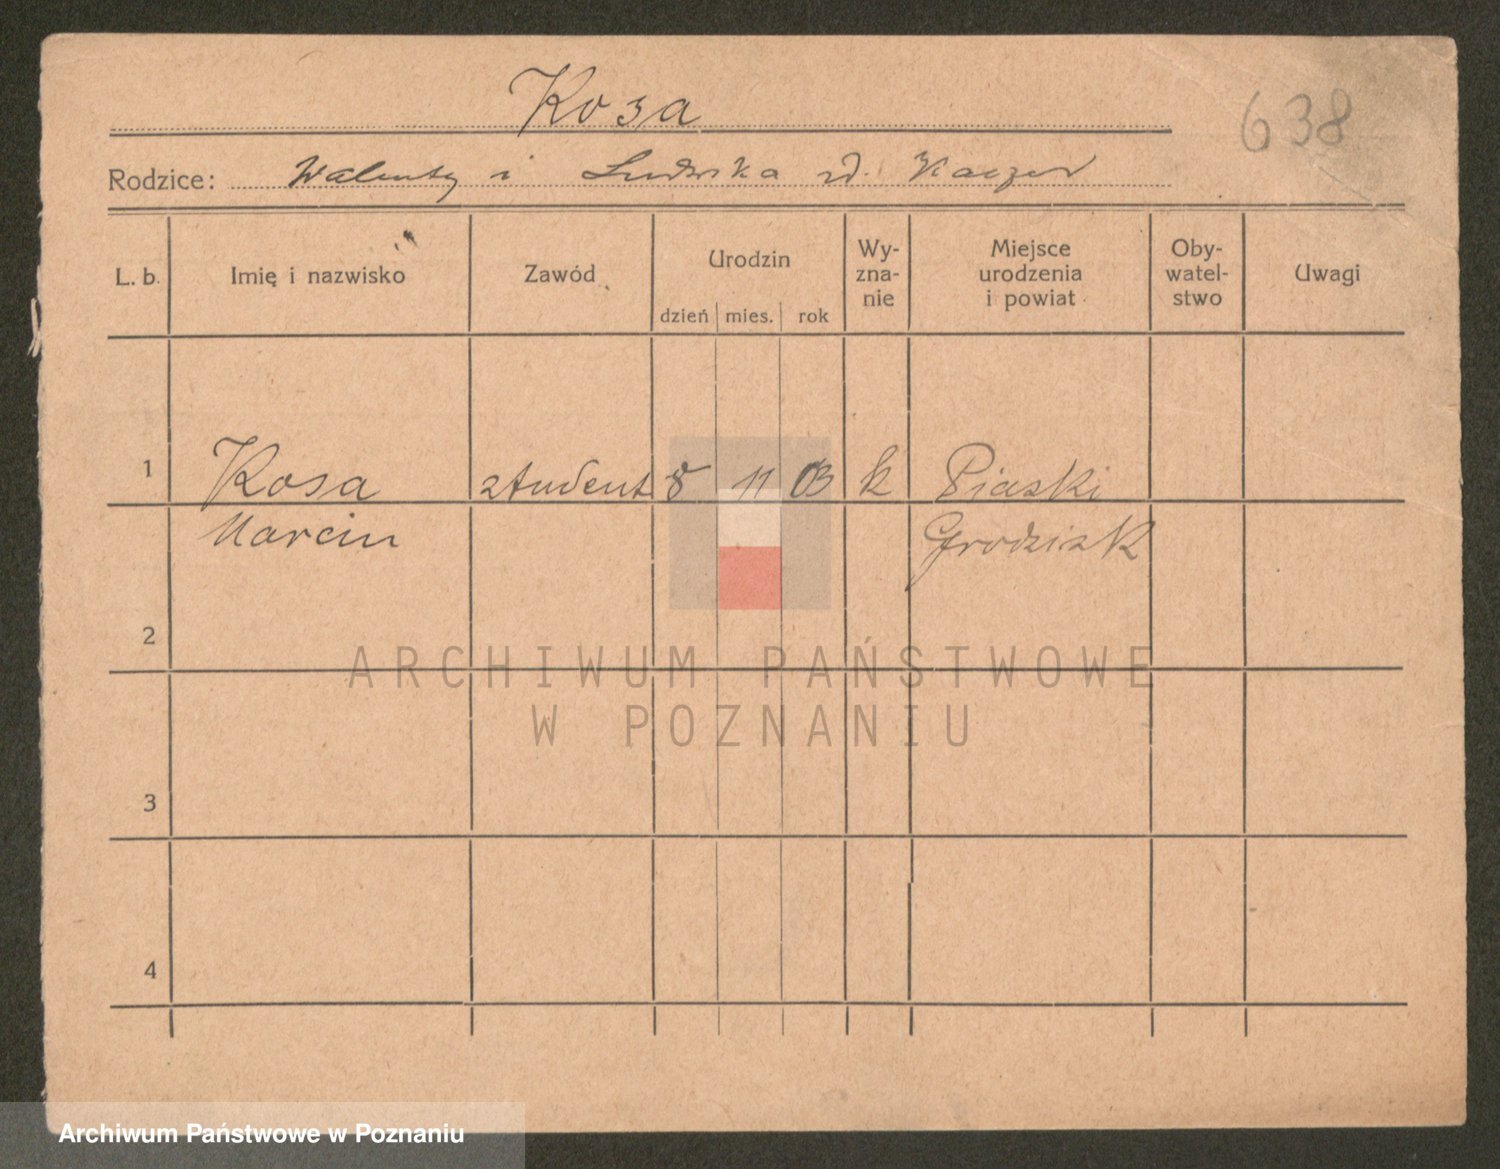 Kosa
638
Rodzice: Walenty i Ludwika z d. Kaczor
L. b. Imię i nazwisko Zawód Urodzin dzień mies. rok Wy-zna-nie Miejsce urodzenia i powiat Oby-watel-stwo Uwagi
1 Kosa student 8 11 03 k Piaski
Marcin Grodzisk
2
ARCHIWUM PAŃSTWOWE
W POZNANIU
3
4
Archiwum Państwowe w Poznaniu